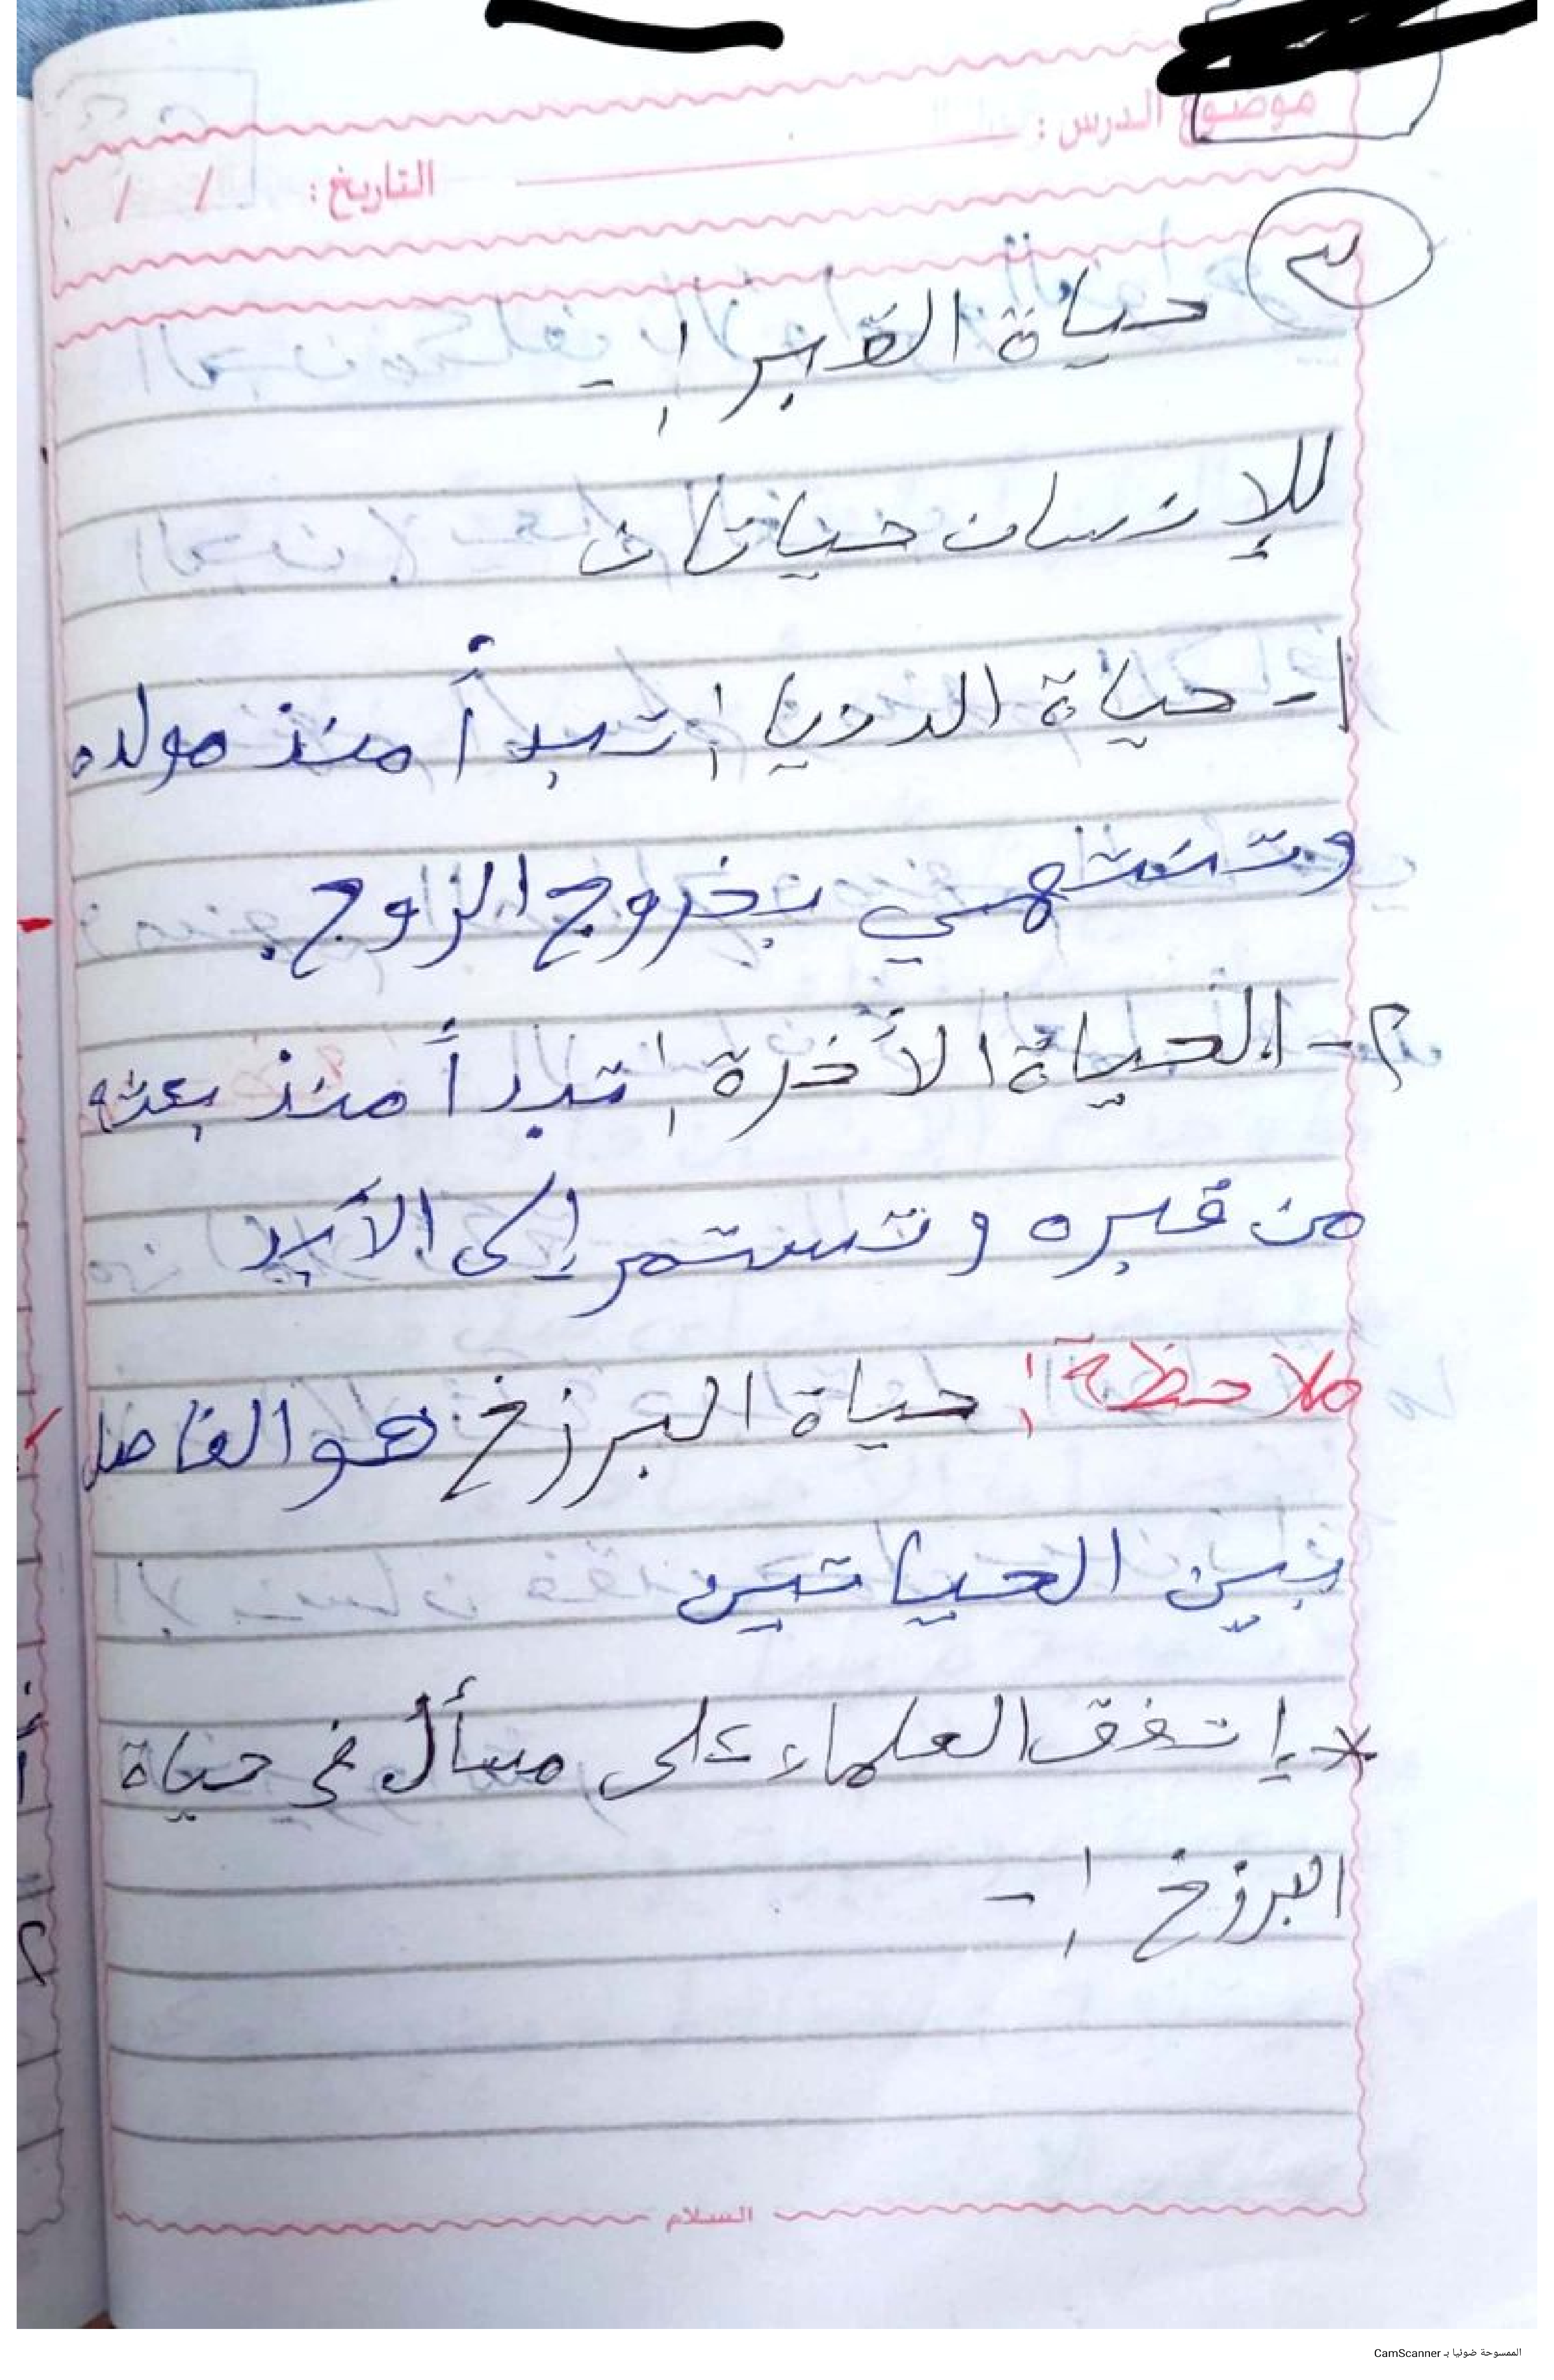 موضوع الدرس :
التاريخ : / /
٣
حياة القبر :-
للإنسان حياتان
١- حياة الدنيا : تبدأ منذ مولده
وتنتهي بخروج الروح .
٢- الحياة الأخرة : تبدأ منذ بعثه
من قبره وتستمر إلى الأبد
ملاحظة : حياة البرزخ هو الفاصل
بين الحياتين
* إتفق العلماء على مسأل في حياة
البرزخ :-
السلام
الممسوحة ضوئيا بـ CamScanner